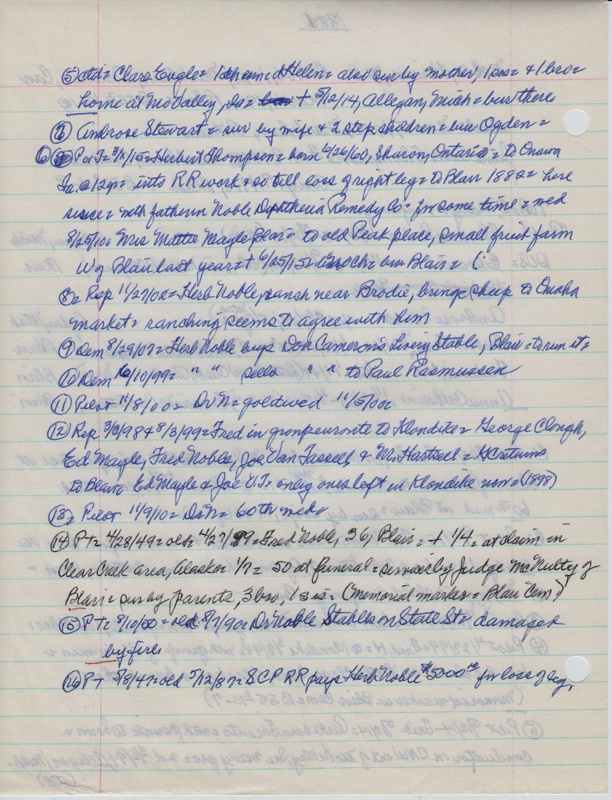 ⑤ ctd = Clara Eagle = 1 ch named Helen = also sur by mother, 1 sis & 1 bro =
home at Mo Valley, Ia = + 5/12/14, Allegan, Mich = bur there
⑦ Ambrose Stewart = sur by wife & 2 step children = bur Ogden =
⑥ = Herbert Thompson = born 6/26/60, Sharon, Ontario = to Onawa
Ia. @ 12 yr = into RR work & so till loss of right leg = to Blair 1882 = here
since = with father in Noble Diphtheria Remedy Co = for some time = med
8/25/10 Mrs Mattie Mayle Blair = to old Peak place, small fruit farm
W of Blair last year = + 6/25/15 = no ch = bur Blair =
⑧ = Rep 11/27/02 = Herb Noble, ranch near Brodie, brings sheep to Omaha
market = ranching seems to agree with him
⑨ Dem 8/29/07 = Herb Noble buys Don Cameron's Livery Stable, Blair = to run it =
⑩ Dem 10/10/99 = " " sells " " to Paul Rasmussen
⑪ Pilot 11/8/00 = Dr N = gold wed 11/5/00
⑫ Rep 3/3/98 & 8/3/99 = Fred in group enroute to Klondike = George Clough,
Ed Mayle, Fred Noble, Joe Van Tassell & M. Hartsell = returns
to Blair Ed Mayle & Joe V.T. only ones left in Klondike now = (1898)
⑬ = Pilot 11/9/10 = Dr N = 60th wed =
⑭ PT = 4/28/49 = old 4/27/99 = Fred Noble, 36, Blair = + 1/4 = at claim in
Clear Creek area, Alaska 1/7 = 50 at funeral = services by Judge McNulty of
Blair = sur by parents, 3 bro, 1 sis = (memorial marker = Blair Cem)
⑮ PT = 8/10/50 = old 8/7/90 = Dr Noble Stables on State St = damaged
by fire =
⑯ PT 5/8/47 = old 5/12/87 = SCP RR pays Herb Noble $5000 00 for loss of leg,